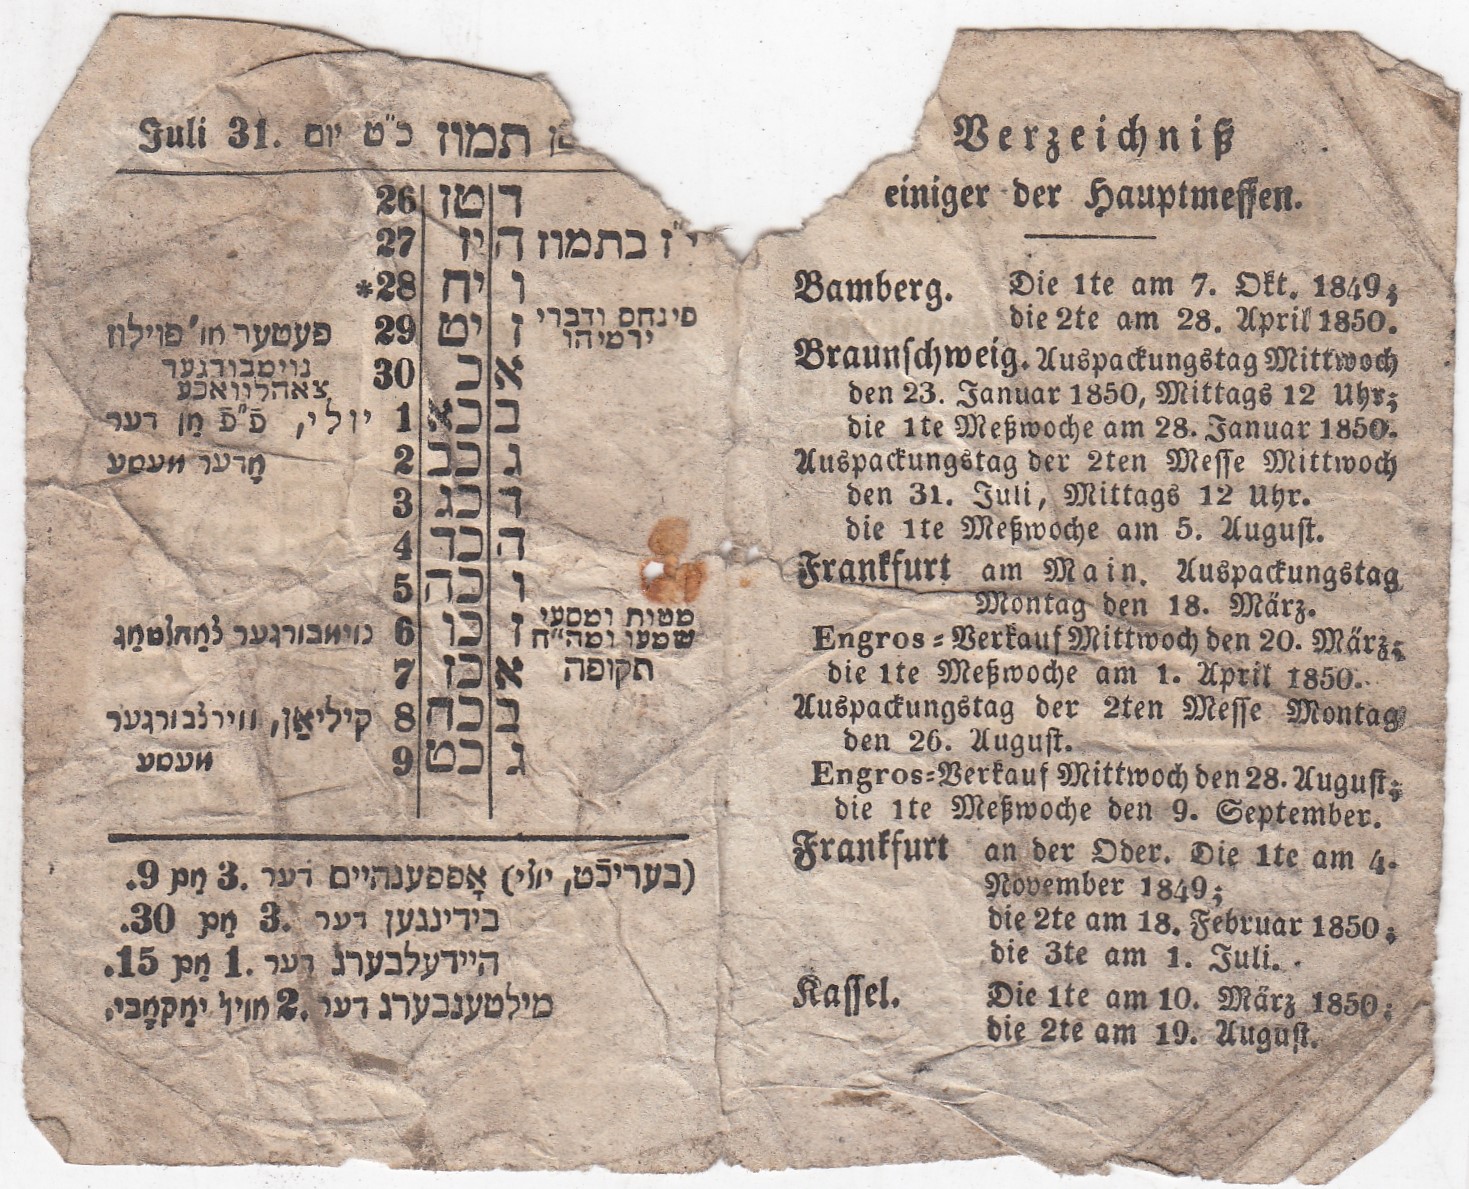 תמוז כ"ט יום Juli 31.
ד טז 26
י"ז בתמוז ה יז 27
ו יח 28*
פינחס ודברי ירמיהו ז יט 29 פעטער אוי' פוילוז
א כ 30 נוימבורגער צאהלוואכע
ב כא 1 יולי, פ"פ אַן דער
ג כב 2 אָדער מעסע
ד כג 3
ה כד 4
ו כה 5
מטות ומסעי שמעו ומה"ח ז כו 6 נוימבורגער צאַהלטאַג
תקופה א כז 7
ב כח 8 קיליאַן, ווירצבורגער
ג כט 9 מעסע
(בעריכט, יולי) אָפפענהיים דער 3. אַם 9.
בידינגען דער 3. אַם 30.
היידעלבערג דער 1. אַם 15.
מילטענבערג דער 2. אויף יאַקאָבי.
Verzeichniß
einiger der Hauptmessen.
Bamberg. Die 1te am 7. Okt. 1849;
die 2te am 28. April 1850.
Braunschweig. Auspackungstag Mittwoch
den 23. Januar 1850, Mittags 12 Uhr;
die 1te Meßwoche am 28. Januar 1850.
Auspackungstag der 2ten Messe Mittwoch
den 31. Juli, Mittags 12 Uhr.
die 1te Meßwoche am 5. August.
Frankfurt am Main. Auspackungstag
Montag den 18. März.
Engros=Verkauf Mittwoch den 20. März;
die 1te Meßwoche am 1. April 1850.
Auspackungstag der 2ten Messe Montag
den 26. August.
Engros=Verkauf Mittwoch den 28. August;
die 1te Meßwoche den 9. September.
Frankfurt an der Oder. Die 1te am 4.
November 1849;
die 2te am 18. Februar 1850;
die 3te am 1. Juli.
Kassel. Die 1te am 10. März 1850;
die 2te am 19. August.